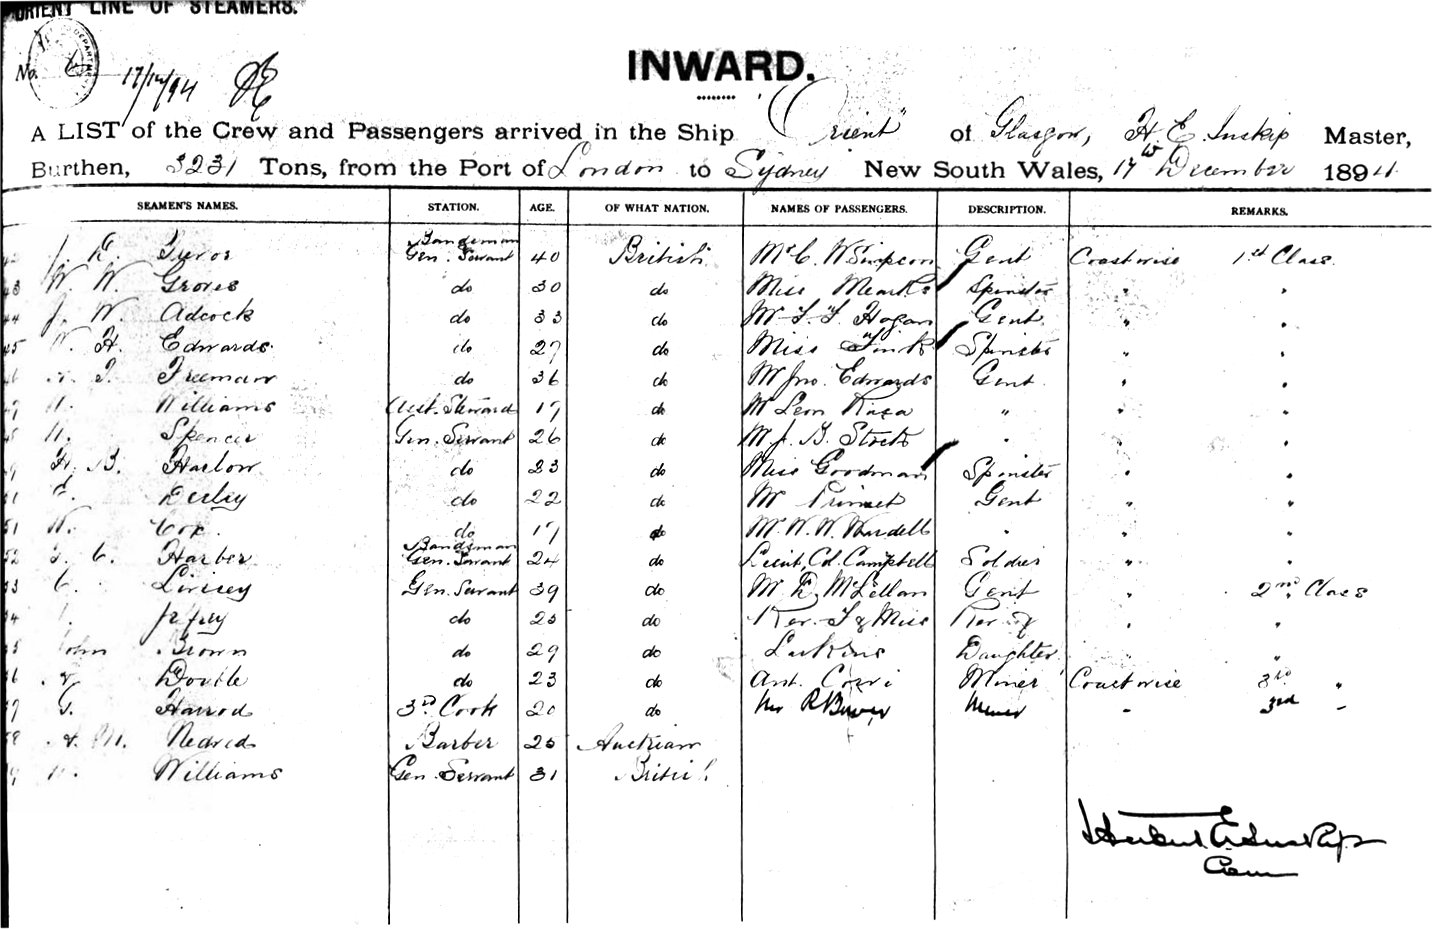 ORIENT LINE OF STEAMERS.
No.
17/12/94
INWARD.
A LIST of the Crew and Passengers arrived in the Ship "Orient" of Glasgow, H. E. Inskip Master,
Burthen, 3231 Tons, from the Port of London to Sydney New South Wales, 17th December 1894
SEAMEN'S NAMES. STATION. AGE. OF WHAT NATION. NAMES OF PASSENGERS. DESCRIPTION. REMARKS.
Bandsman
Gen. Servant 40 British Mr C. W Simpson Gent Coastwise 1st Class
43 W. W. Groves do 30 do Miss Spinster " "
44 J. W. Adcock do 33 do Mr Hogan Gent " "
45 H. Edwards do 27 do Miss Spinster " "
46 Freeman do 36 do Mr Jno. Edwards Gent " "
47 Williams Steward 17 do Mr Leon " " "
48 Spencer Gen. Servant 26 do Mr J. B. " " "
49 H. B. Harlow do 23 do Miss Goodman Spinster " "
do 22 do Mr Gent " "
51 Cox do 17 do Mr W. W. Wardell " " "
Bandsman
52 C. Harber Gen. Servant 24 do Lieut. Col. Campbell Soldier " "
53 C. Linsey Gen. Servant 39 do Mr D. McLellan Gent " 2nd Class
54 do 25 do Rev. & Miss Rev. & " "
55 John Brown do 29 do Larkins Daughter " "
56 Double do 23 do Ant. Miner Coastwise 3rd "
57 Harrod 3rd Cook 20 do Mr R Miner " 3rd "
58 M. Barber 25 Austrian
59 Williams Gen. Servant 31 British
Herbert E. Inskip
Com